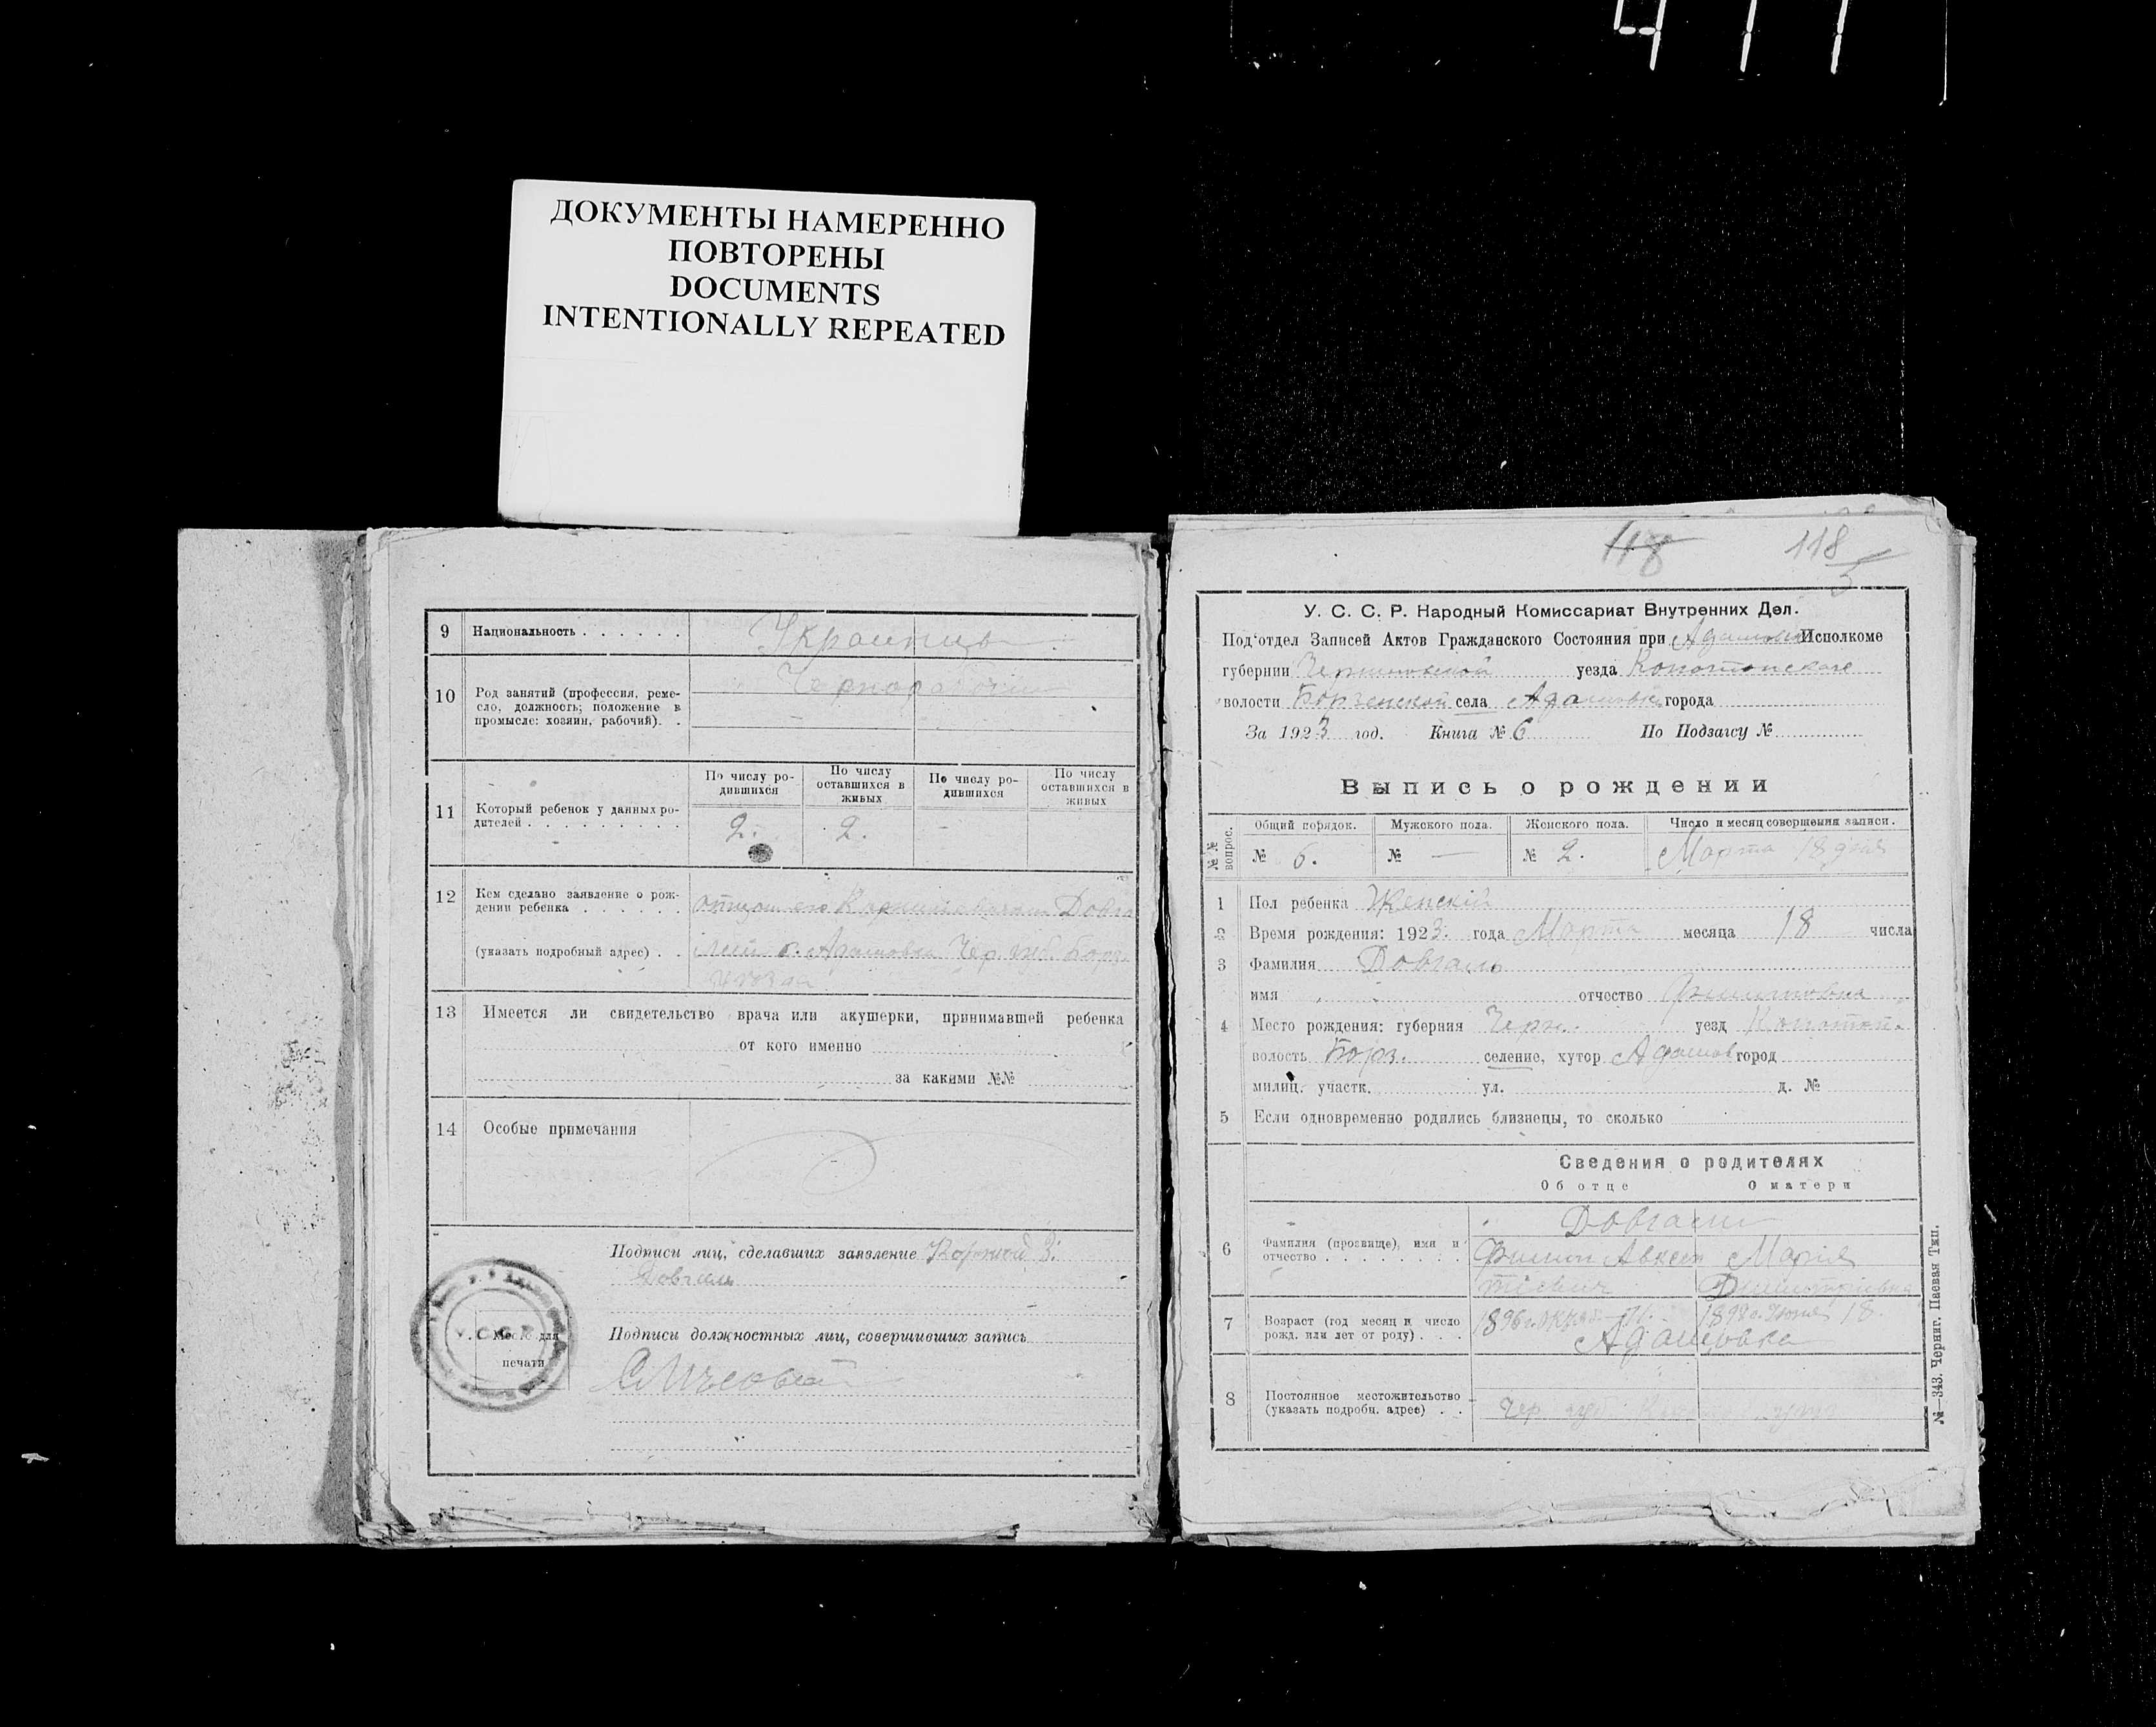 477
ДОКУМЕНТЫ НАМЕРЕННО
ПОВТОРЕНЫ
DOCUMENTS
INTENTIONALLY REPEATED
9 Национальность . . . . . . Украинцы
10 Род занятий (профессия, реме-
сло, должность; положение в
промысле: хозяин, рабочий). .
11 Который ребенок у данных ро-
дителей . . . . . . . . .
По числу ро-
дившихся
По числу
оставшихся в
живых
По числу ро-
дившихся
По числу
оставшихся в
живых
2. 2. -
12 Кем сделано заявление о рож-
дении ребенка . . . . . .
(указать подробный адрес) . .
13 Имеется ли свидетельство врача или акушерки, принимавшей ребенка
от кого именно
за какими №№
14 Особые примечания
Подписи лиц, сделавших заявление
Довгаль
Подписи должностных лиц, совершивших запись
Место для
печати
118 118
5
У. С. С. Р. Народный Комиссариат Внутренних Дел.
Под'отдел Записей Актов Гражданского Состояния при Исполкоме
губернии Черниговской уезда Конотопского
волости Борзенской села Адамовка города
За 1923 год. Книга № 6 По Подзагсу №
Выпись о рождении
№№ вопрос.
Общий порядок. Мужского пола. Женского пола. Число и месяц совершения записи.
№ 6. № — № 2. Марта 18 дня
1 Пол ребенка Женскій
2 Время рождения: 1923. года Марта месяца 18 числа
3 Фамилия Довгаль
имя отчество Филиповна
4 Место рождения: губерния Черн. уезд Конотоп.
волость Борз. селение, хутор Адамов город
милиц. участк. ул. д. №
5 Если одновременно родились близнецы, то сколько
Сведения о родителях
Об отце О матери
6 Фамилия (прозвище), имя и
отчество . . . . . . . .
Довгали
Филип Авксен Марія
тіевич Димитріевна
7 Возраст (год месяц и число
рожд. или лет от роду) . . .
Адамовка
8 Постоянное местожительство
(указать подробн. адрес) . .
Чер. губ.
№—343. Черниг. Паевая Тип.